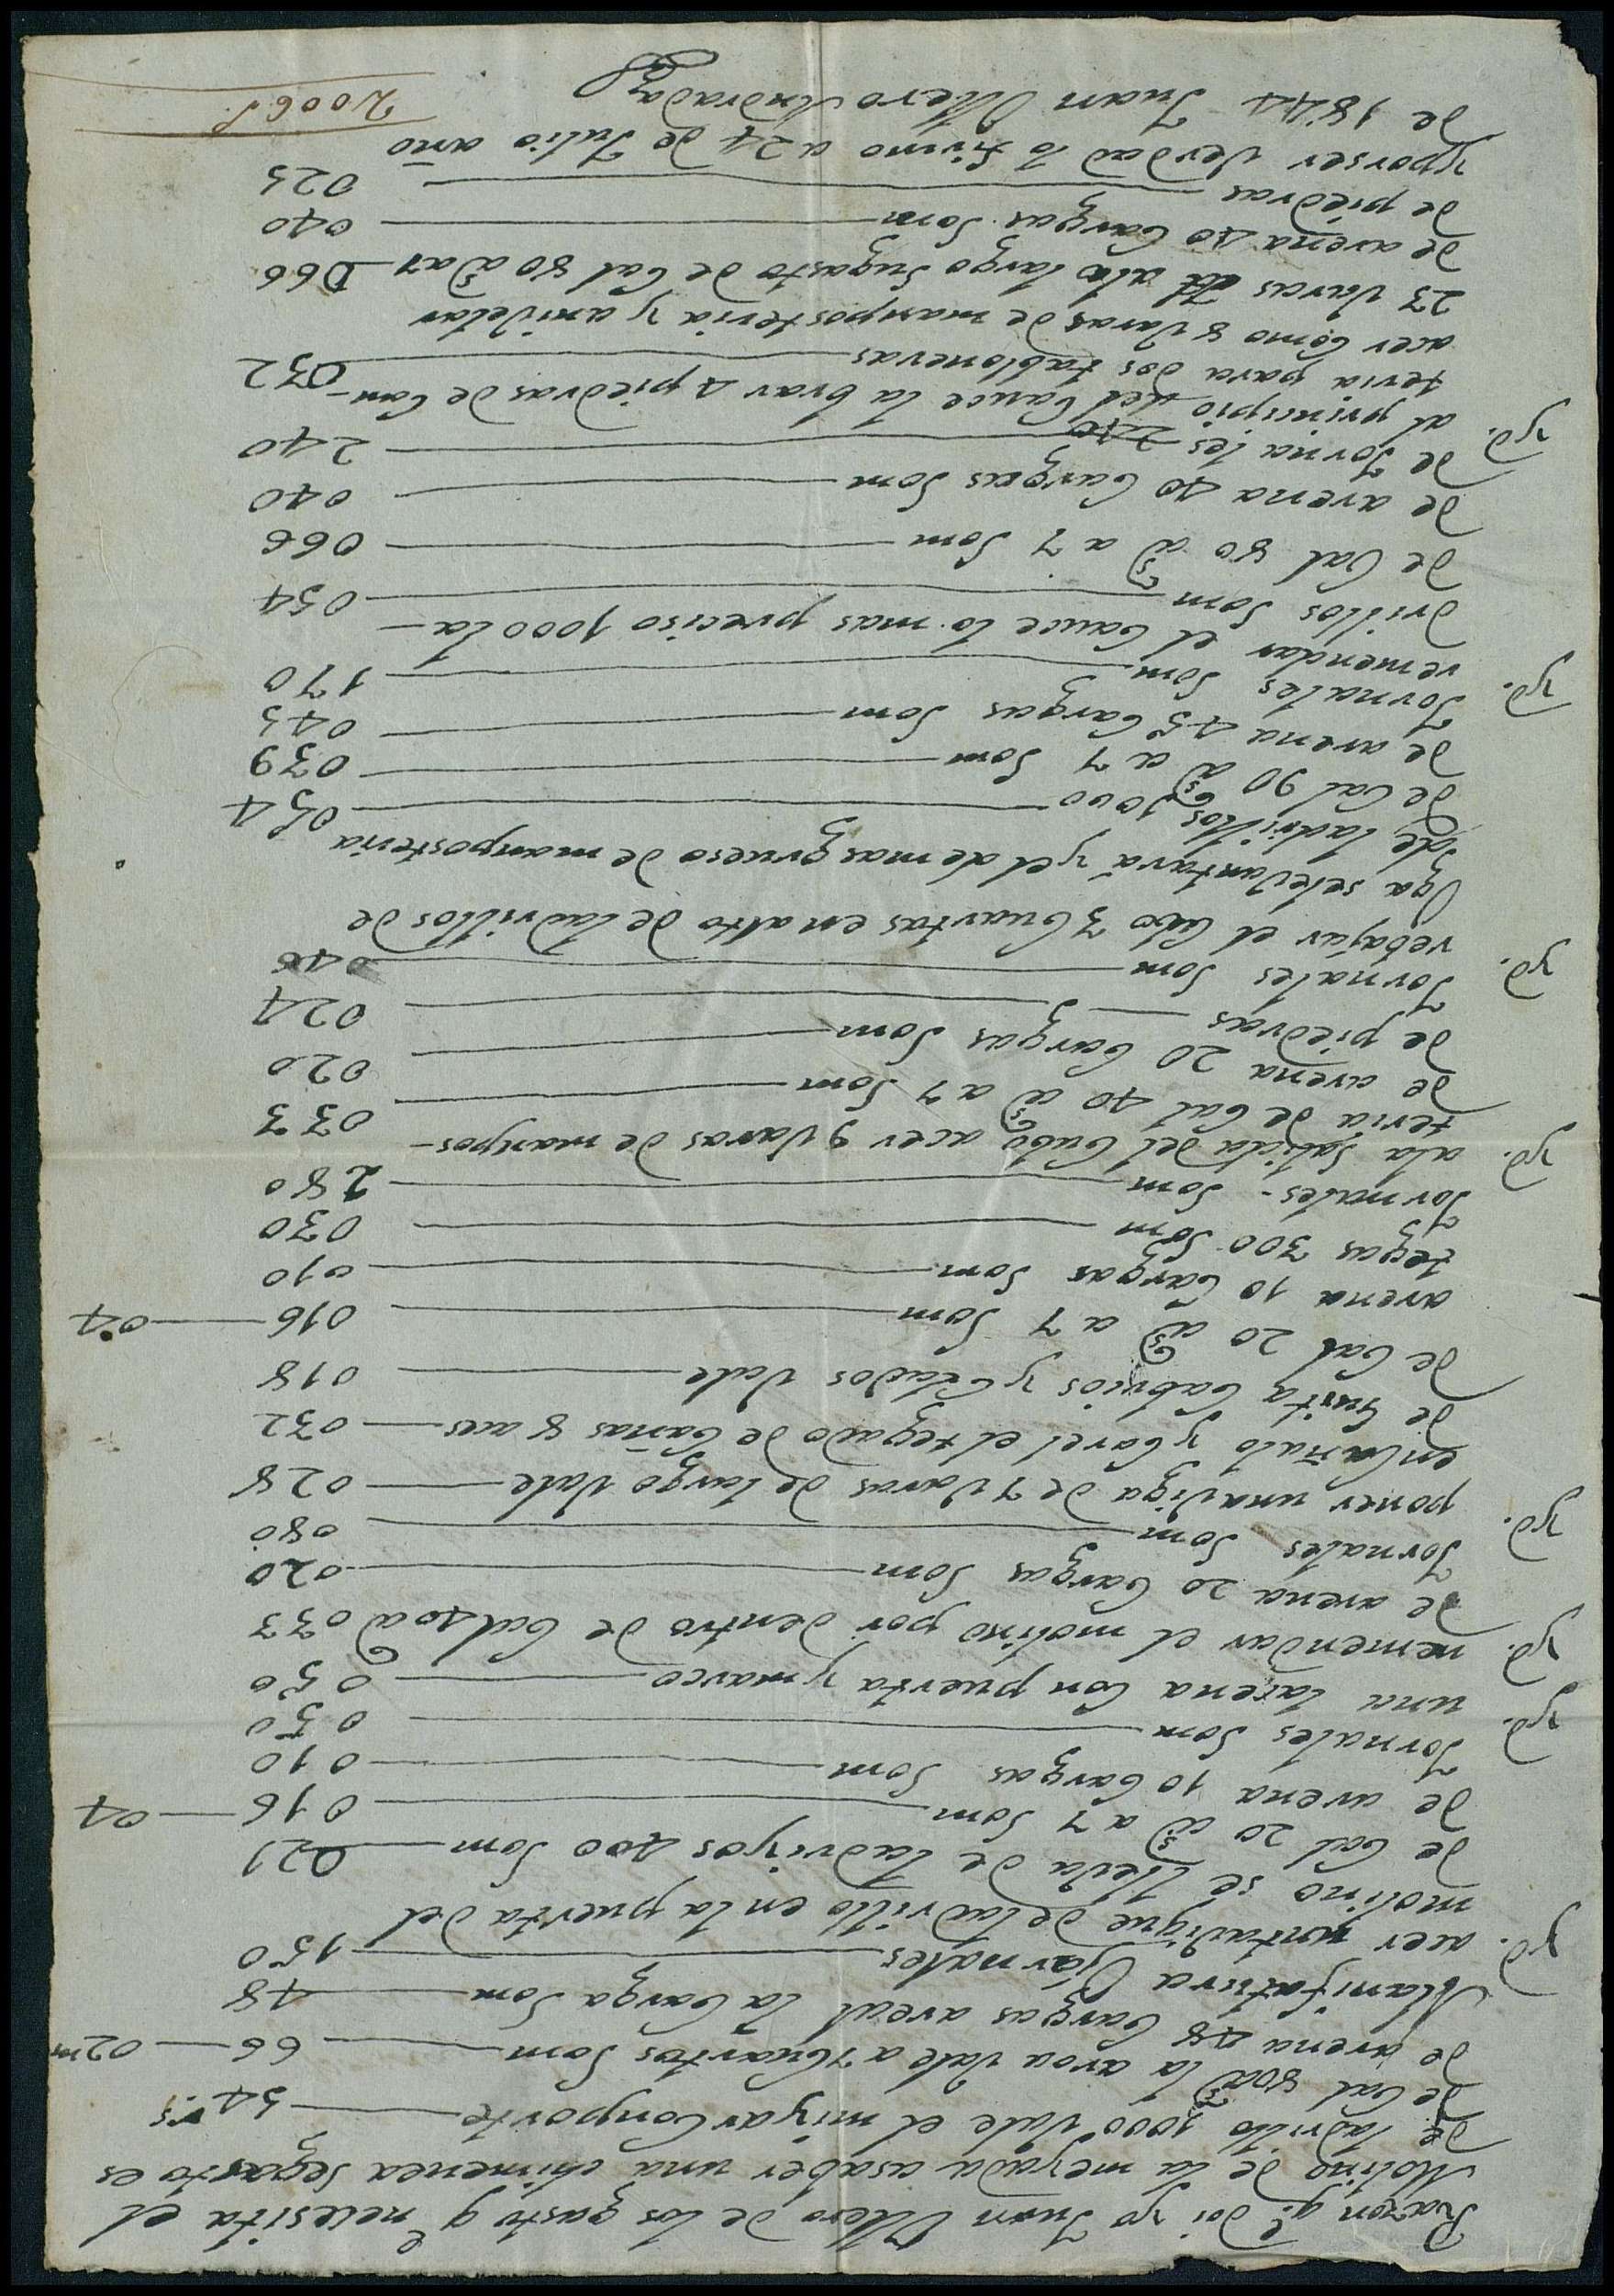 Razon q.e doi yo Juan Otero de los gasto q.e nelesita el
Molino de la mezada asaber una chimenea segasto es
de ladrillo 1000 Vale el miyar Conporte — 54 rs
de Cal 80 @s la aroa Vale a 7 Cuartos Som — 66 — 02 m
de arena 48 Cargas areal la Carga Som — 48
Manifatura Jornales — 150
yd. acer untavique de ladrillo en la puerta del
molino se lleva de ladriyos 400 Som — 021
de Cal 20 @s a 7 Som — 016 — 04
de arena 10 Cargas Som — 010
Jornales Som — 050
yd. una lacena Con puerta y marco — 050
yd. remendar el molino por dentro de Cal 40 @ 033
de arena 20 Cargas Som — 020
Jornales Som — 080
yd. poner unaviga de 7 Varas de largo Vale — 028
enCañado y Corel eltegado de Cañas 8 aces — 032
de Gusta Cabrios y Clados Vale — 018
de Cal 20 @s a 7 Som — 016 — 04
arena 10 Cargas Som — 010
tegas 300 Som — 030
Jornales - Som — 280
yd. ala Salida del Cubo acer 9 Varas de manpos-
teria de Cal 40 @s a 7 Som — 033
de arena 20 Cargas Som — 020
de piedras — 024
Jornales Som — 040
yd. rebajar el Cubo 3 Cuartas en alto de ladrillos de
Oga selebantara y el demas grueso de manposteria
de ladrillos 1000 — 054
de Cal 90 @s a 7 Som — 039
de arena 45 Cargas Som — 045
Jornales Som — 170
yd. remendar el Cauce lo mas preciso 1000 la-
drillos Som — 054
de Cal 80 @s a 7 Som — 066
de arena 40 Cargas Som — 040
de Jornales — 240
yd. al prinsipio del Cauce la brar 4 piedras de Can-
teria para dos tabloneras — 032
acer Como 8 Varas de manposteria y anivelar
23 Varas alo largo Sugasto de Cal 80 @s a 7 — 066
de arena 40 Cargas Som — 040
de piedras — 025
yporser Verdad lo firmo a 24 de Julio año
de 1844 Juan Otero Andrada
2006 s.